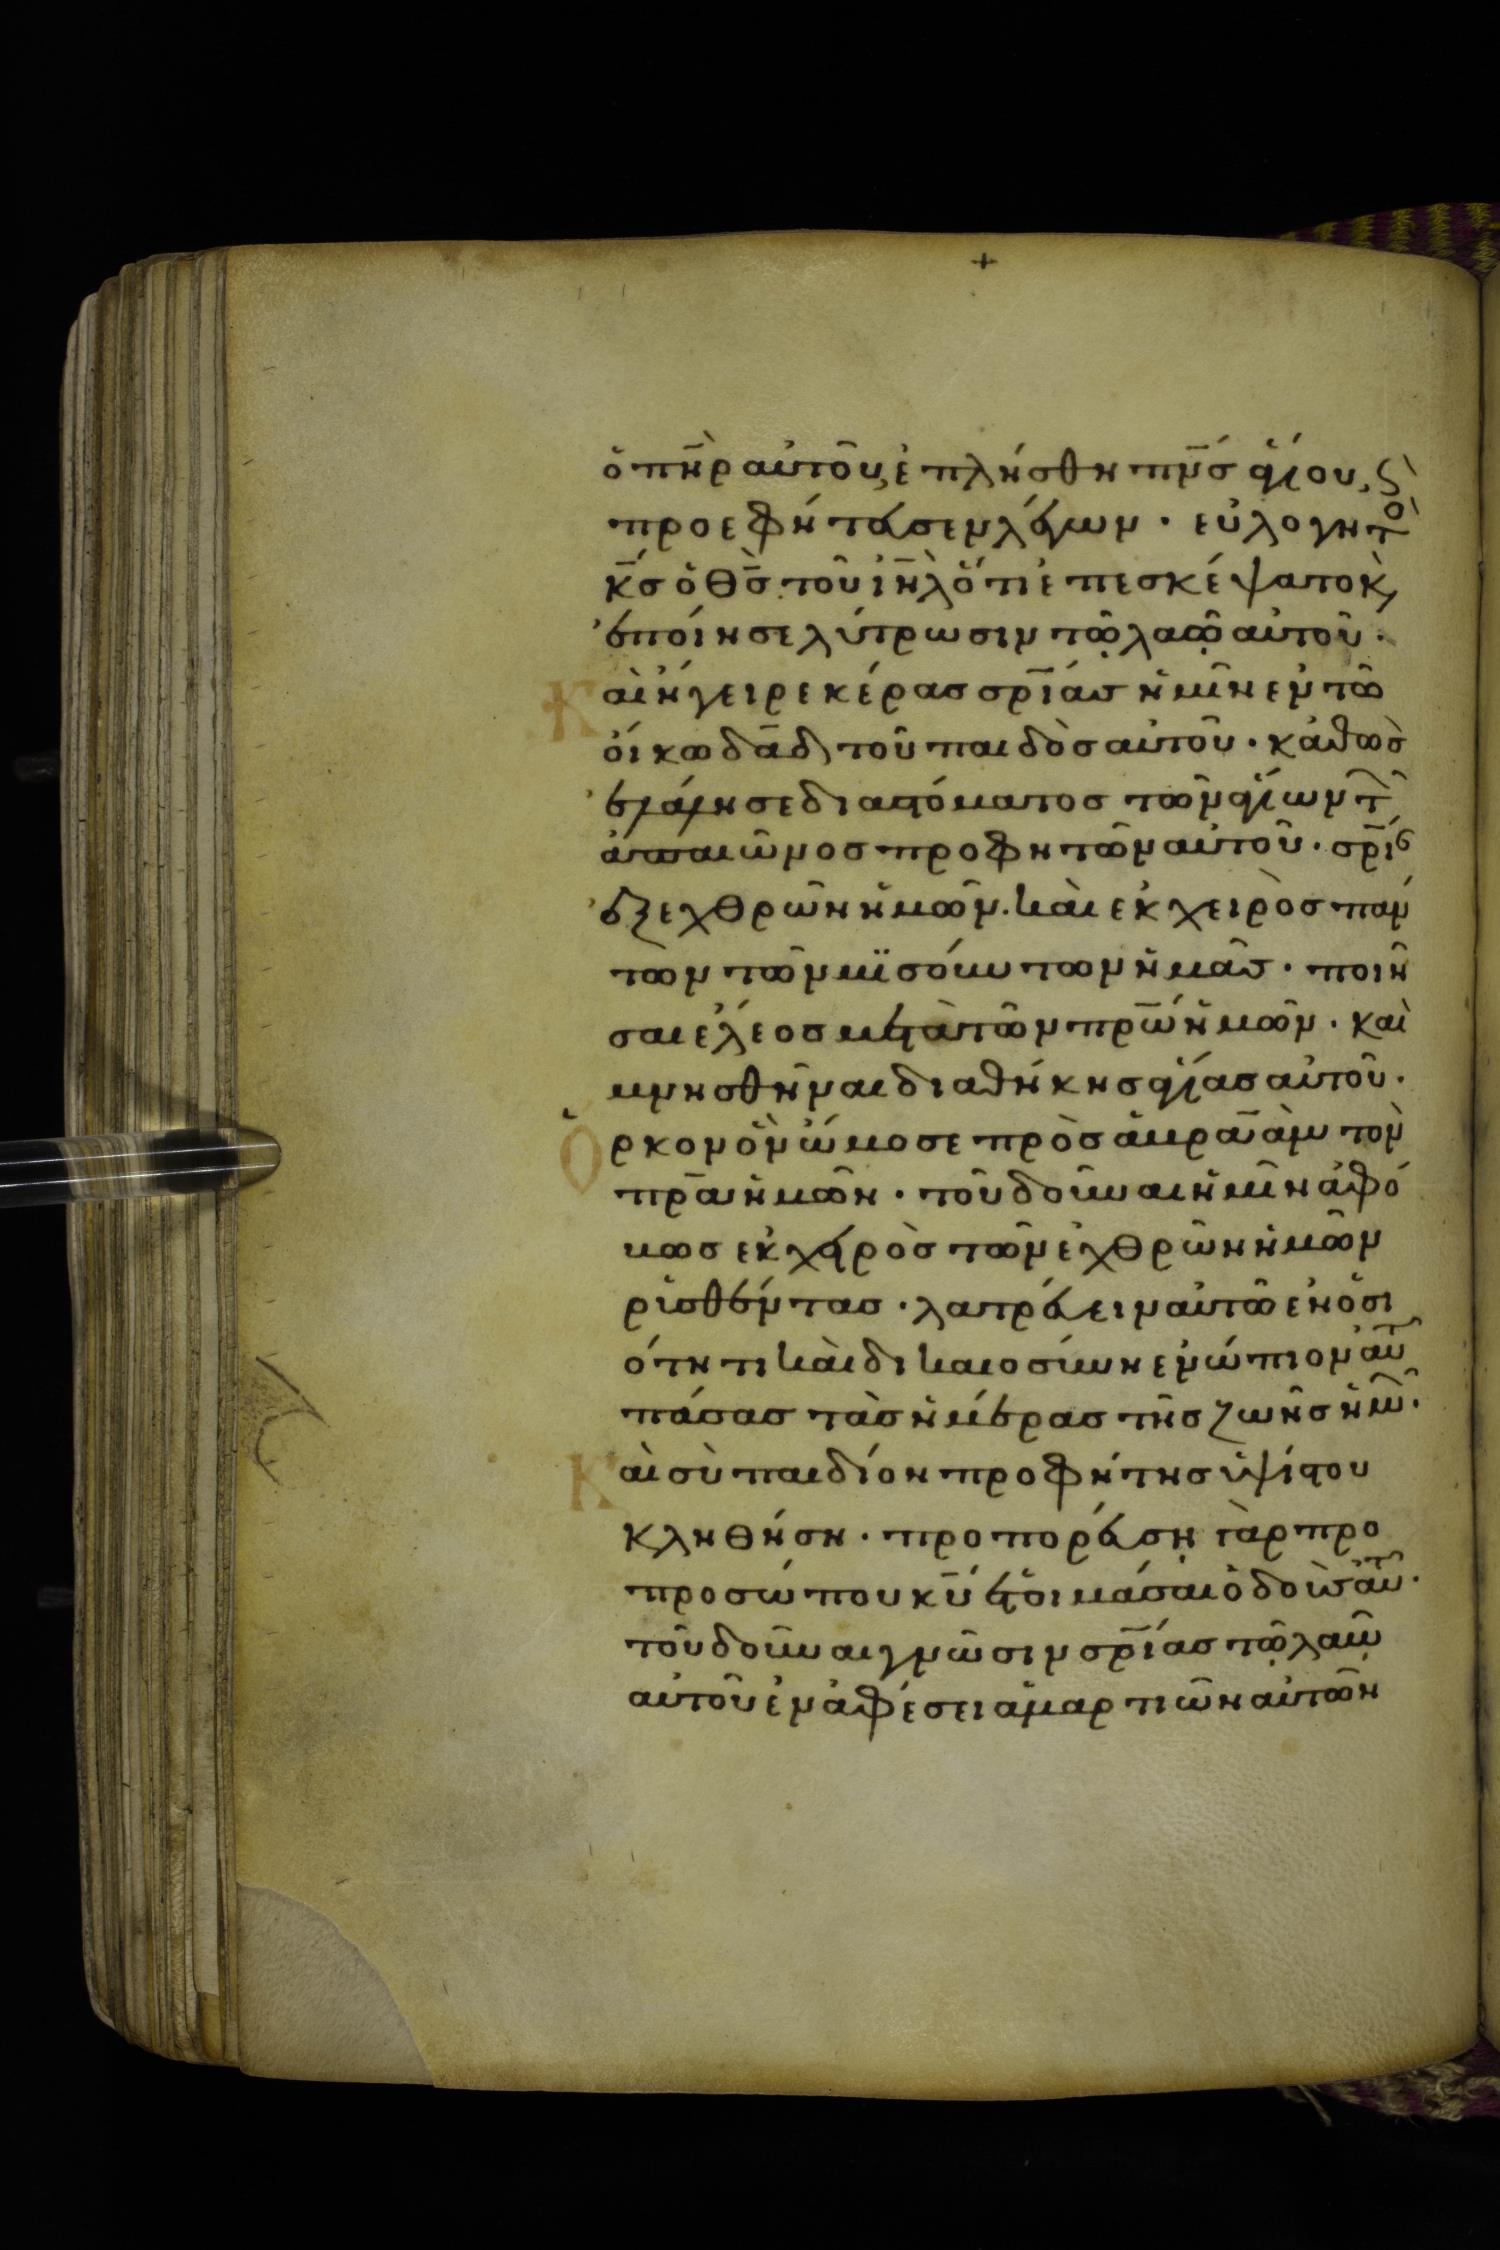 ὁ πη̅ρ αὐτοῦ, ἐπλήσθη πν̅σ ἁγίου, ϗ
προεφήτευσεν λέγων · εὐλογητὸ
κ̅σ ὁ θ̅σ τοῦ ιη̅λ ὅτι ἐπεσκέψατο κ,
ἐποίησε λύτρωσιν τῷ λαῷ αὐτοῦ ·
Καὶ ἤγειρε κέρας σρ̅ίας ἡμῖν ἐν τῶ
οἴκω δα̅δ τοῦ παιδὸς αὐτοῦ · καθὼς
ἐλάλησε διὰ στόματος τῶν ἁγίων τ
ἀπαιῶνος προφητῶν αὐτοῦ · σρ̅ίαν
ἐξ ἐχθρῶν ἡμῶν · καὶ ἐκ χειρὸς παν
των τῶν μισούντων ἡμᾶς · ποιῆ
σαι ἔλεος μετὰ τῶν πρ̅ων ἡμῶν · καὶ
μνησθῆναι διαθήκης ἁγίας αὐτοῦ ·
Ὅρκον ὃν ὤμοσε πρὸς ἀβραὰμ τὸν
πρ̅α ἡμῶν · τοῦ δοῦναι ἡμῖν ἀφό
βως ἐκ χειρὸς τῶν ἐχθρῶν ἡμῶν
ρισθέντας · λατρεύειν αὐτῶ ἐν ὁσι
ότητι καὶ δικαιοσύνη ἐνώπιον αὐτ
πάσας τὰς ἡμέρας τῆς ζωῆς ἡμ ·
Καὶ σὺ παιδίον προφήτης ὑψίστου
κληθήση · προπορεύσῃ γὰρ προ
προσώπου κ̅υ ἑτοιμάσαι ὁδοὺς αὐτ ·
τοῦ δοῦναι γνῶσιν σρ̅ίας τῷ λαῷ
αὐτοῦ ἐν ἀφέσει ἁμαρτιῶν αὐτῶν